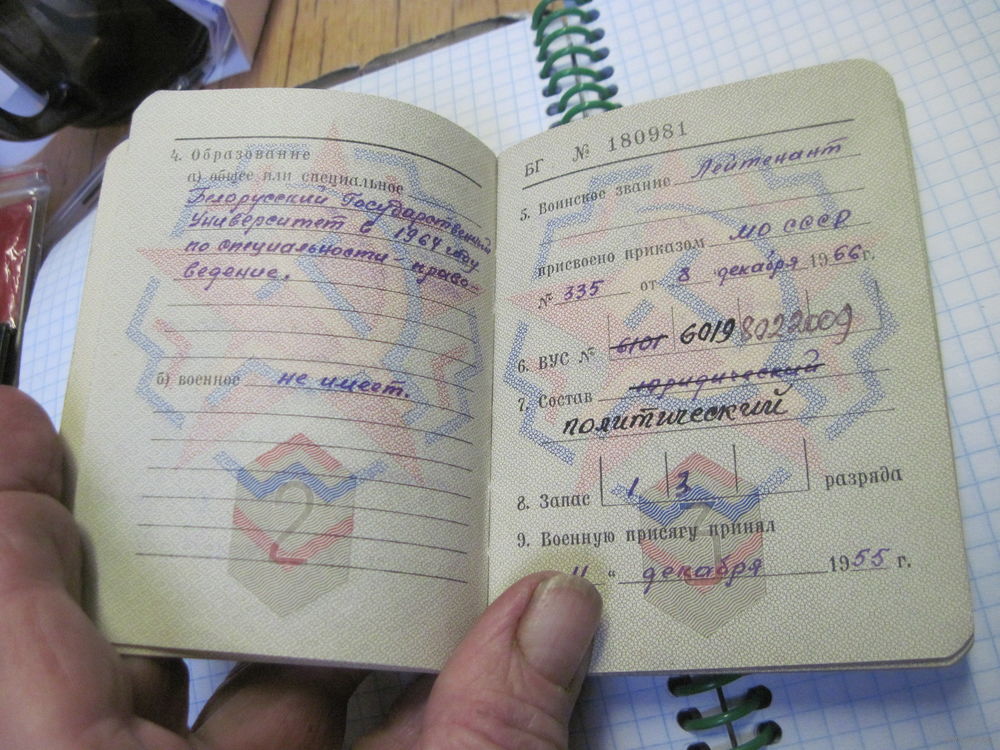 4. Образование
а) общее или специальное
Белорусский Государственный
Университет в 1964 году
по специальности – право-
ведение.
б) военное не имеет.
2
БГ № 180981
5. Воинское звание Лейтенант
присвоено приказом МО СССР
№ 335 от 8 декабря 1966 г.
6. ВУС № 6101 6019 8022009
7. Состав юридический
политический
8. Запас 1 3 разряда
9. Военную присягу принял
" декабря 1955 г.